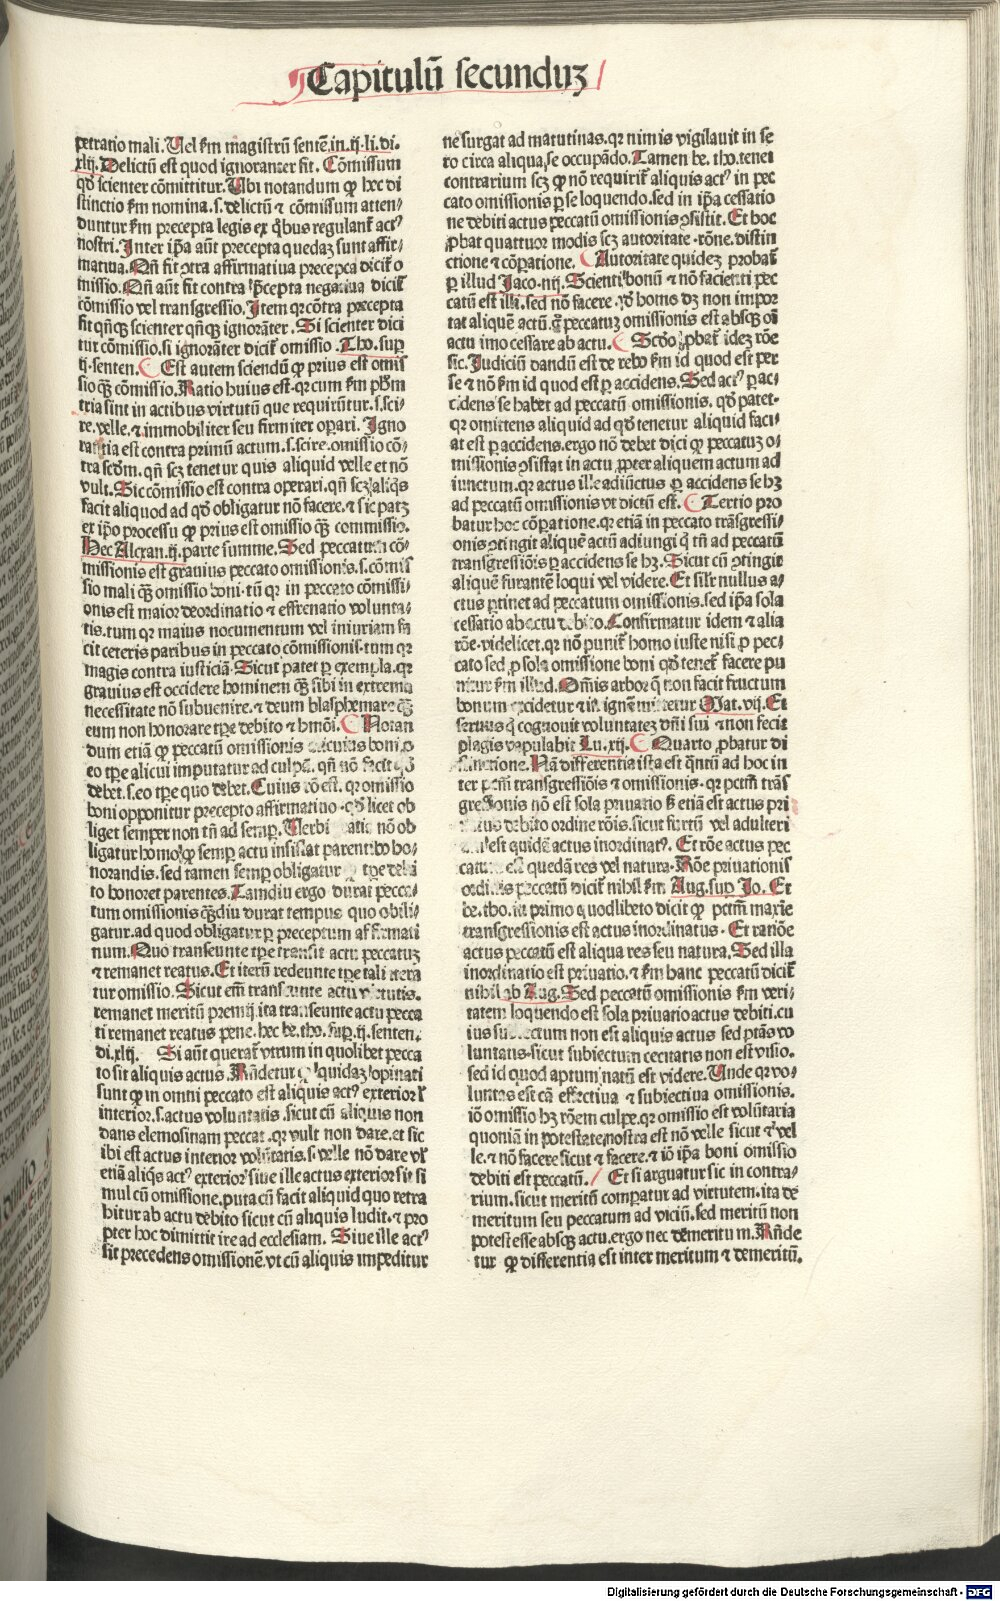 Capitulū secunduꝫ
petratio mali. Uel ẜm magistrū sentē. in. ij. li. di-
xlij. Delictū est quod ignoranter fit. Cōmissum
qđ scienter cōmittitur. Ubi notandum ꝙ hec di
stinctio ẜm nomina. s. delictū ⁊ cōmissum atten-
duntur ẜm precepta legis ex qͥbus regulant᷑ actꝰ
nostri. Inter ip̄a aūt precepta quedaꝫ sunt affir-
matiua. Qn̄ fit ɔtra affirmatiua precepta dicit᷑ o
missio. Qn̄ aūt fit contra p̄cepta negatiua dicit᷑
cōmissio vel transgressio. Item qꝛ cōtra precepta
fit qn̄qꝫ scienter qn̄qꝫ ignorāter. Si scienter dici
tur cōmissio. si ignorāter dicit᷑ omissio. Tho. suꝑ
ij. senten. Est autem sciendū ꝙ prius est omis
sio qꝫ cōmissio. Ratio huius est. qꝛ cum ẜm ph̄m
tria sint in actibus virtutū que requirūtur. s. sci-
re. velle. ⁊ immobiliter seu firmiter oꝑari. Igno
rantia est contra primū actum. s. scire. omissio cō-
tra scḋm. qn̄ scꝫ tenetur quis aliquid velle et nō
vult. Sic cōmissio est contra operari. qn̄ scꝫ aliqͥs
facit aliquod ad qđ obligatur nō facere. ⁊ sic patꝫ
ex ip̄o processu ꝙ prius est omissio qꝫ commissio.
Hec Alexan. ij. parte summe. Sed peccatum cō-
missionis est grauius peccato omissionis. s. cōmis
sio mali qꝫ omissio boni. tū qꝛ in peccato cōmissi-
onis est maior deordinatio ⁊ effrenatio volunta-
tis. tum qꝛ maius nocumentum vel iniuriam fa
cit ceteris paribus in peccato cōmissionis. tum qꝛ
magis contra iusticiā. Sicut patet ꝑ exempla. qꝛ
grauius est occidere hominem qꝫ sibi in extrema
necessitate nō subuenire. ⁊ deum blasphemare qꝫ
eum non honorare tꝑe debito ⁊ hmōi. Notan
dum etiā ꝙ peccatū omissionis alicuius boni ꝓ
eo tꝑe alicui imputatur ad culpā. qn̄ nō facit qđ
debet. s. eo tꝑe quo debet. Cuius rō est. qꝛ omissio
boni opponitur precepto affirmatiuo. qđ licet ob
liget semper non tn̄ ad semꝑ. Uerbi gratia nō ob
ligatur homo ꝙ semꝑ actu insistat parentibꝰ ho-
norandis. sed tamen semꝑ obligatur tꝑe debi
to honoret parentes. Tamdiu ergo durat pecca-
tum omissionis qꝫdiu durat tempus quo obli-
gatur. ad quod obligatur ꝑ preceptum affirmati
uum. Quo transeunte tꝑe transit actu peccatuꝫ
⁊ remanet reatus. Et iterū redeunte tꝑe tali itera
tur omissio. Sicut em̄ transeunte actu virtutis.
remanet meritū premij. ita transeunte actu pecca
ti remanet reatus pene. hec be. tho. suꝑ. ij. senten.
di. xlij. Si aūt querat᷑ vtrum in quolibet pecca
to sit aliquis actus. Rn̄detur ꝙ quidaꝫ opinati
sunt ꝙ in omni peccato est aliquis actꝰ exterior vl̓
interior. s. actus voluntatis. sicut cū aliquis non
dans elemosinam peccat. qꝛ vult non dare. et sic
ibi est actus interior volūtatis. s. velle nō dare vl̓
etiā aliqͥs actꝰ exterior siue ille actus exterior sit si
mul cū omissione. puta cū facit aliquid quo retra
hitur ab actu debito sicut cū aliquis ludit. ⁊ pro
pter hoc dimittit ire ad ecclesiam. Siue ille actꝰ
sit precedens omissionē. vt cū aliquis impeditur
ne surgat ad matutinas. qꝛ nimis vigilauit in se
ro circa aliqua se occupādo. Tamen be. tho. tenet
contrarium scꝫ ꝙ nō requirit᷑ aliquis actꝰ in pec
cato omissionis ꝑ se loquendo. sed in ip̄a cessatio
ne debiti actus peccatū omissionis ɔsistit. Et hoc
ꝓbat quattuor modis scꝫ autoritate. rōne. distin
ctione ⁊ cōꝑatione. Autoritate quideꝫ probat᷑
ꝑ illud Jaco. iiij. Scienti bonū ⁊ nō facienti pec
catū est illi. sed nō facere qđ homo dꝫ non impor
tat aliquē actū. g̊ peccatuꝫ omissionis est absqꝫ oī
actu imo cessare ab actu. Scḋo ꝓbat᷑ ideꝫ rōe
sic. Judiciū dandū est de rebꝰ ẜm id quod est per
se ⁊ nō ẜm id quod est ꝑ accidens. Sed actꝰ ꝑ ac-
cidens se habet ad peccatū omissionis. qđ patet-
qꝛ omittens aliquid ad qđ tenetur aliquid faci-
at est ꝑ accidens. ergo nō debet dici ꝙ peccatuꝫ o-
missionis ɔsistat in actu ꝓpter aliquem actum ad
iunctum. qꝛ actus ille adiūctus ꝑ accidens se hꝫ
ad peccatū omissionis vt dictū est. Tertio pro
batur hoc cōꝑatione. qꝛ etiā in peccato trāsgressi-
onis ɔtingit aliquē actū adiungi q̇ tn̄ ad peccatū
transgressiōis ꝑ accidens se hꝫ. Sicut cū ɔtingit
aliquē furantē loqui vel videre. Et sil̓r nullus a-
ctus ꝑtinet ad peccatum omissionis. sed ip̄a sola
cessatio ab actu debito. Confirmatur idem ⁊ alia
rōe. videlicet. qꝛ nō punit᷑ homo iuste nisi ꝓ pec-
cato sed ꝓ sola omissione boni qđ tenet᷑ facere pu
nitur ẜm illud. Omīs arbor q̄ non facit fructum
bonum excidetur ⁊ in ignē mittetur Mat. vij. Et
seruus q̇ cognouit voluntateꝫ dn̄i sui ⁊ non fecit
plagis vapulabit Lu. xij. Quarto ꝓbatur di
stinctione. Nā differentia ista est quātū ad hoc in
ter pctm̄ transgressiōis ⁊ omissionis. qꝛ pctm̄ trās
gressionis nō est sola priuatio sꝫ etiā est actus pri
uatus debito ordine rōis. sicut furtū vel adulteri
um est quidē actus inordinatꝰ. Et rōe actus pec
catum est quedā res vel natura. Rōe priuationis
ordinis peccatū dicit᷑ nihil ẜm Aug. suꝑ Jo. Et
be. tho. in primo quodlibeto dicit ꝙ pctm̄ maxīe
transgressionis est actus inordinatus. Et ratiōe
actus peccatū est aliqua res seu natura. Sed illa
inordinatio est priuatio. ⁊ ẜm hanc peccatū dicit᷑
nihil ab Aug. Sed peccatū omissionis ẜm veri-
tatem loquendo est sola priuatio actus debiti. cu
ius subiectum non est aliquis actus sed ptās vo
luntatis. sicut subiectum cecitatis non est visio.
sed id quod aptum natū est videre. Unde qꝛ vo-
luntas est cā effectiua ⁊ subiectiua omissionis.
iō omissio hꝫ rōem culpe. qꝛ omissio est volūtaria
quoniā in potestate nostra est nō velle sicut ⁊ vel
le. ⁊ nō facere sicut ⁊ facere. ⁊ iō ip̄a boni omissio
debiti est peccatū. Et si arguatur sic in contra-
rium. sicut meritū comparatur ad virtutem. ita de
meritum seu peccatum ad viciū. sed meritū non
potest esse absqꝫ actu. ergo nec demeritum. Rn̄de
tur ꝙ differentia est inter meritum ⁊ demeritū.
Digitalisierung gefördert durch die Deutsche Forschungsgemeinschaft - DFG